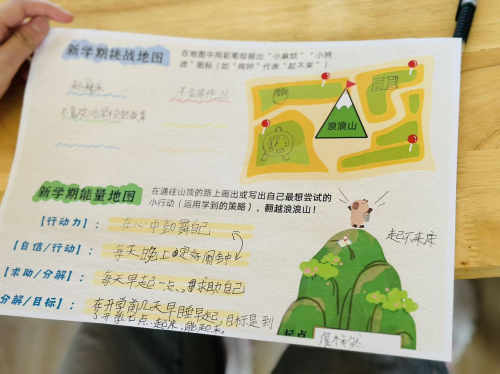 新学期挑战地图
在地图中用彩笔绘画出“小麻烦”“小挑
战”图标（如“闹钟”代表“起不来”）
起床
不会写作业
不喜欢吃学校的饭菜
浪浪山
新学期能量地图
在通往山顶的路上画出或写出自己最想尝试的
小行动（运用学到的策略），翻越浪浪山！
【行动力】：在心中鼓舞自己
起不来床
【自信/行动】：每天晚上定好闹钟
【求助/分解】：每天早起一点，寻求自己
分解/目标】：在开学前几天早睡早起，目标是到
了开学七点 起来，能起来
起点